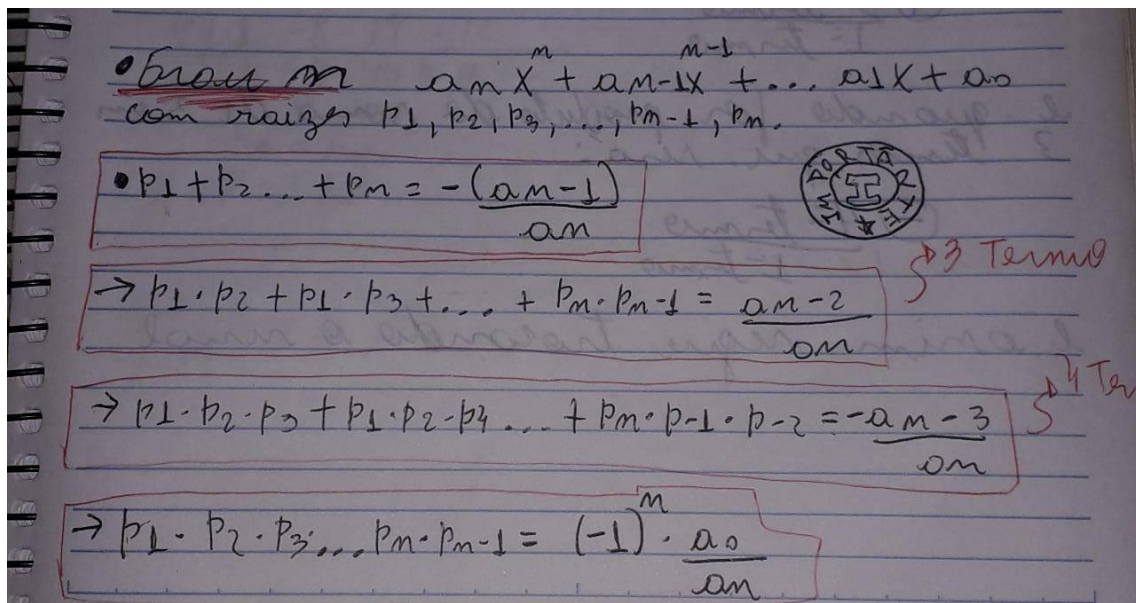 • Grau n anXⁿ + an-1Xⁿ⁻¹ + ... a1X + a0
com raizes p1, p2, p3, ..., pn-1, pn.
• p1 + p2 ... + pn = -(an-1)/an
IMPORTANTE
I
→ p1 · p2 + p1 · p3 + ... + pn · pn-1 = an-2/an
3 Termo
→ p1 · p2 · p3 + p1 · p2 · p4 ... + pn · p-1 · p-2 = -an-3/an
4 Ter
→ p1 · p2 · p3 ... pn · pn-1 = (-1)ⁿ · a0/an